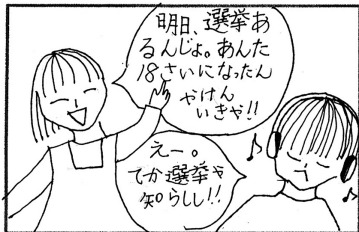 明日、選挙あ
るんじょ。あんた
18さいになったん
やけん
いきや!!
えー。
てか選挙や
知らしし!!